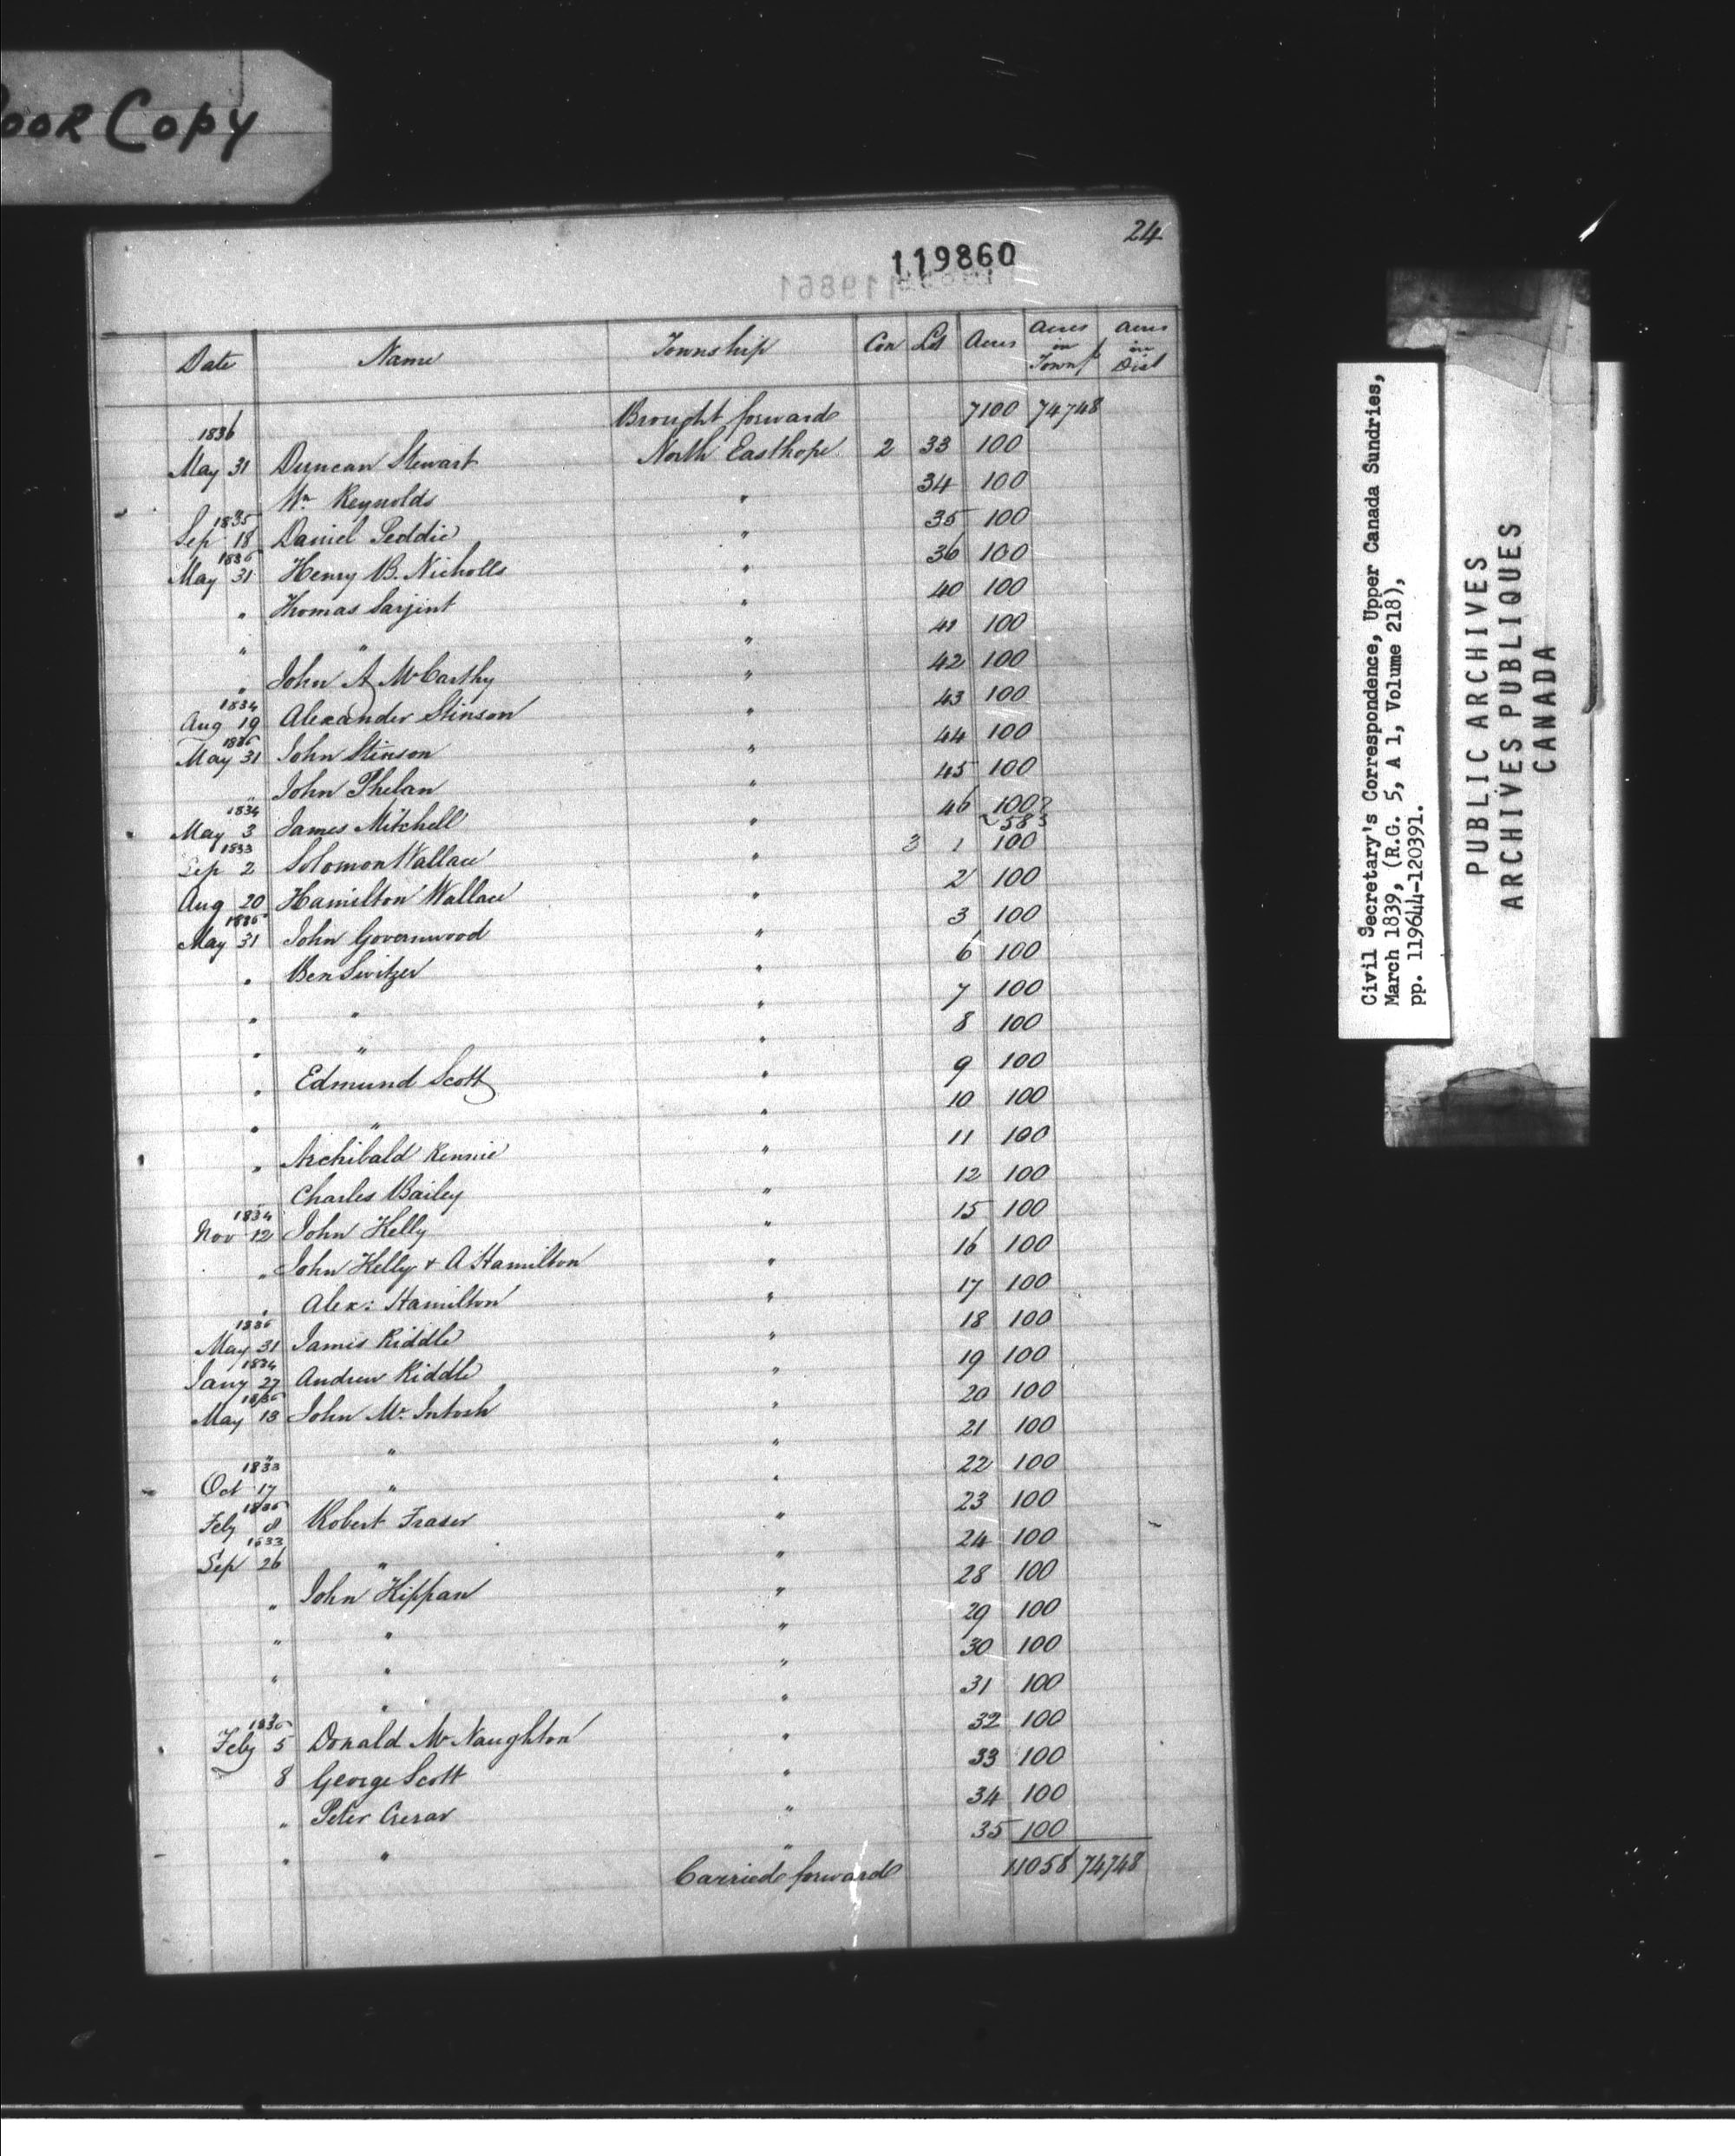 Poor Copy
24
119860
119861
Date Name Township Con Lot Acres Acres in Townp Acres in Dist
Brought forward 7100 74748
1836
May 31 Duncan Stewart North Easthope 2 33 100
" Wm Reynolds " 34 100
1835
Sep 18 Daniel Peddie " 35 100
1836
May 31 Henry B. Nicholls " 36 100
" Thomas Sarjint " 40 100
" " " 41 100
" John A McCarthy " 42 100
1834
Aug 19 Alexander Stinson " 43 100
1836
May 31 John Stinson " 44 100
" John Phelan " 45 100
1834
May 3 James Mitchell " 46 100
58
1833
Sep 2 Solomon Wallace " 3 1 100
Aug 20 Hamilton Wallace " 2 100
1836
May 31 John Governwood " 3 100
" Ben Switzer " 6 100
" " " 7 100
" " " 8 100
" Edmund Scott " 9 100
" " " 10 100
" Archibald Rennie " 11 100
" Charles Bailey " 12 100
1834
Nov 12 John Kelly " 15 100
" John Kelly + A Hamilton " 16 100
" Alex: Hamilton " 17 100
1836
May 31 James Riddle " 18 100
1834
Jany 27 Andrew Riddle " 19 100
1836
May 13 John Mc Intosh " 20 100
" " " 21 100
1833
Oct 17 " " 22 100
1836
Feby 8 Robert Fraser " 23 100
1833
Sep 26 " " 24 100
" John Kippan " 28 100
" " " 29 100
" " " 30 100
" " " 31 100
1836
Feby 5 Donald McNaughton " 32 100
8 George Scott " 33 100
" Peter Crerar " 34 100
" " " 35 100
Carried forward 11058 74748
Civil Secretary's Correspondence, Upper Canada Sundries,
March 1839, (R.G. 5, A 1, Volume 218),
pp. 119644-120391.
PUBLIC ARCHIVES
ARCHIVES PUBLIQUES
CANADA